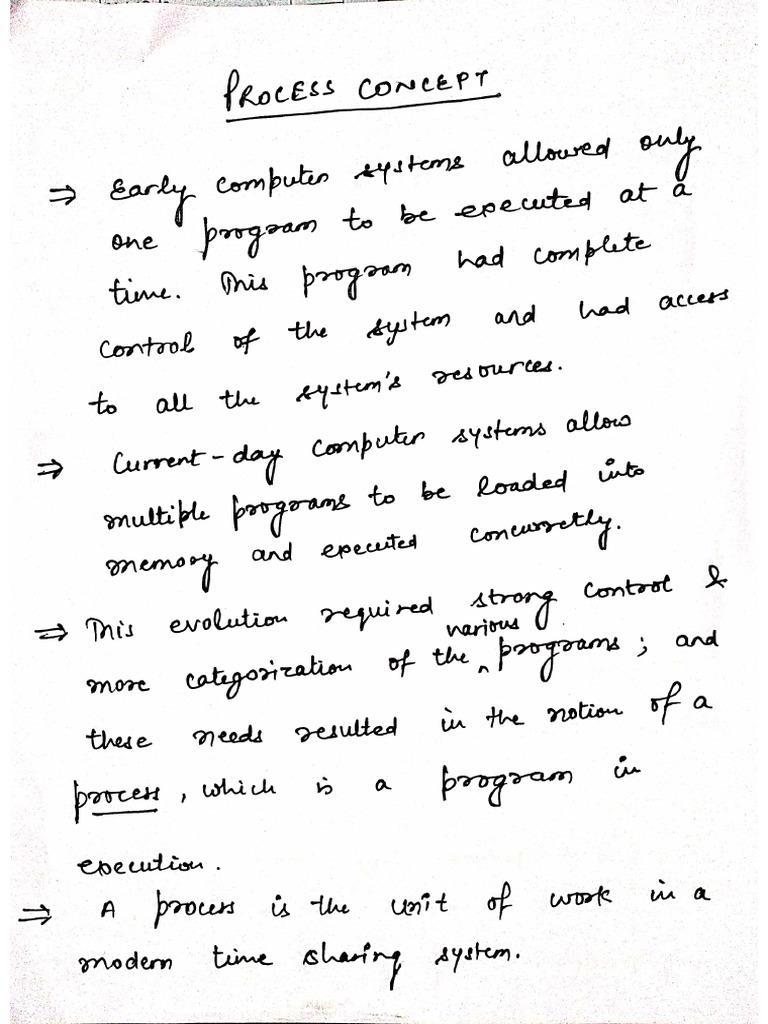 PROCESS CONCEPT
⇒ Early computer systems allowed only
one program to be executed at a
time. This program had complete
control of the system and had access
to all the system's resources.
⇒ Current-day computer systems allow
multiple programs to be loaded into
memory and executed concurretly.
⇒ This evolution required strong control &
more categorization of the various programs; and
these needs resulted in the notion of a
process, which is a program in
execution.
⇒ A process is the unit of work in a
modern time sharing system.